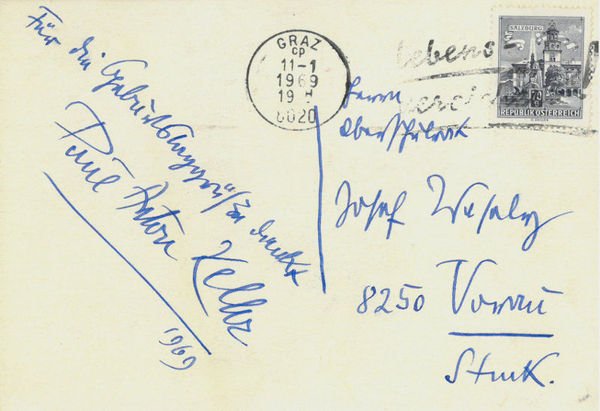 Für die Geburtstagsgrüße dankt
Paul Anton Keller
1969
GRAZ
cp
11-1
1969
19 H
8020
lebens
SALZBURG
70
REPUBLIK ÖSTERREICH
Herrn
Oberschulrat
Josef Wesely
8250 Vorau
Stmk.